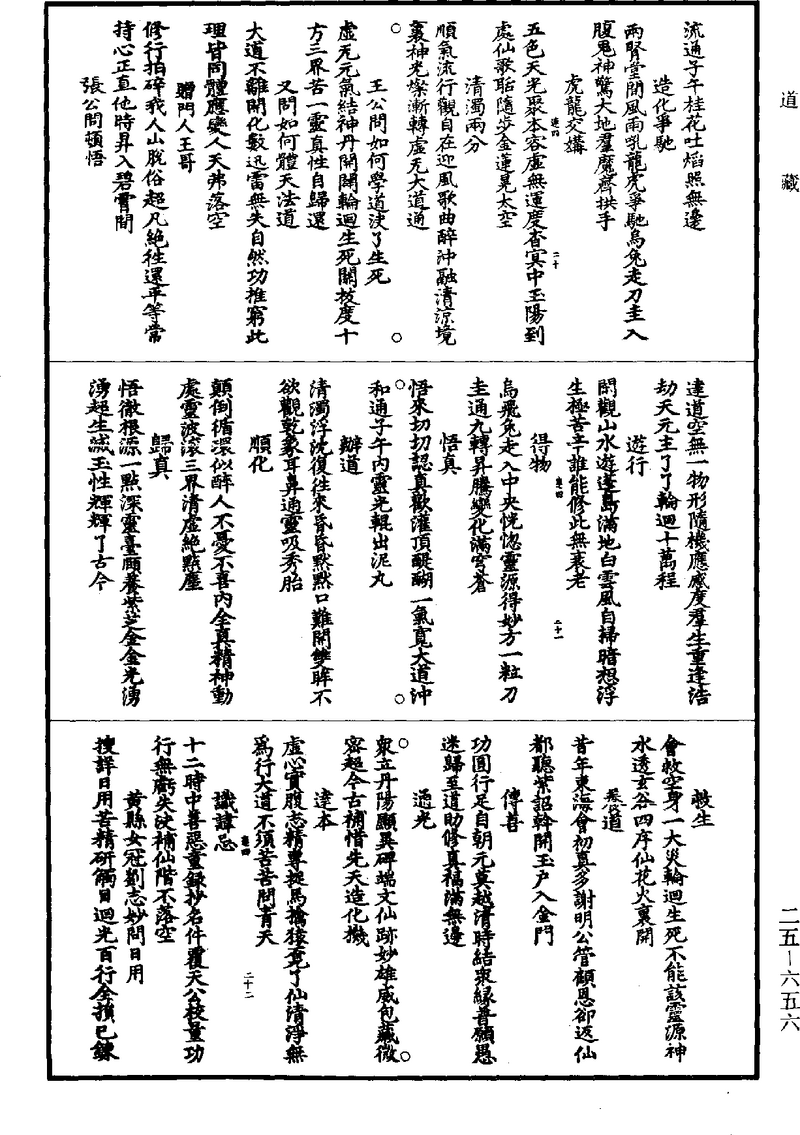 道藏
流通子午桂花吐焰照無邊
造化爭馳
兩腎堂間風雨乳龍虎爭馳烏兔走刀圭入
腹鬼神驚大地羣魔齊拱手
虎龍交媾
五色天光聚本容虛無運度杳冥中玉陽到
處仙歌聒隨步金蓮晃太空
清濁兩分
順氣流行觀自在迎風歌曲醉沖融清涼境
裏神光燦漸轉虛无大道通
王公問如何學道決了生死
虛无元氣結神丹開闢輪迴生死關拔度十
方三界苦一靈真性自歸還
又問如何體天法道
大道不離開化數迅雷無失自然功推窮此
理皆同體應變人天弗落空
贈門人王哥
修行拍碎我人山脫俗超凡絕往還平等常
持心正直他時昇入碧霄間
張公問頓悟
達道空無一物形隨機應感度羣生重逢浩
劫天元主了了輪迴十萬程
遊行
閑觀山水遊蓬島滿地白雲風自掃暗想浮
生極苦辛誰能修此無衰老
得物
烏飛兔走入中央恍惚靈源得妙方一粒刀
圭通九轉昇騰變化滿穹蒼
悟真
悟來切切認真歡灌頂醍醐一氣寬大道沖
和通子午內靈光輥出泥丸
辦道
清濁浮沈復往來昏昏默默口難開雙眸不
欲觀乾象耳鼻通靈吸秀胎
順化
顛倒循環似醉人不憂不喜內全真精神動
處靈波滾三界清虛絕點塵
歸真
悟徹根源一點深靈臺頤養紫芝金金光湧
湧超生滅玉性輝輝了古今
救生
會救空身一大災輪迴生死不能該靈源神
水透玄谷四序仙花火裏開
卷道
昔年東海會初真多謝明公管顧恩卻返仙
都聽紫詔幹開玉戶入金門
傳善
功圓行足自朝元莫越清時結眾緣普願愚
迷歸至道助修真福滿無邊
通光
眾立丹陽顯異碑端文仙跡妙雄威包藏微
密超今古補惜先天造化機
達本
虛心實腹志精專捉馬擒猿竟了仙清淨無
為行大道不須苦苦問青天
識諱忌
十二時中善惡童錄抄名件覆天公校量功
行無虧失決補仙階不落空
黃縣女冠劉志妙問日用
搜詳日用苦精研觸目迴光百行全損己鍊
二五—六五六